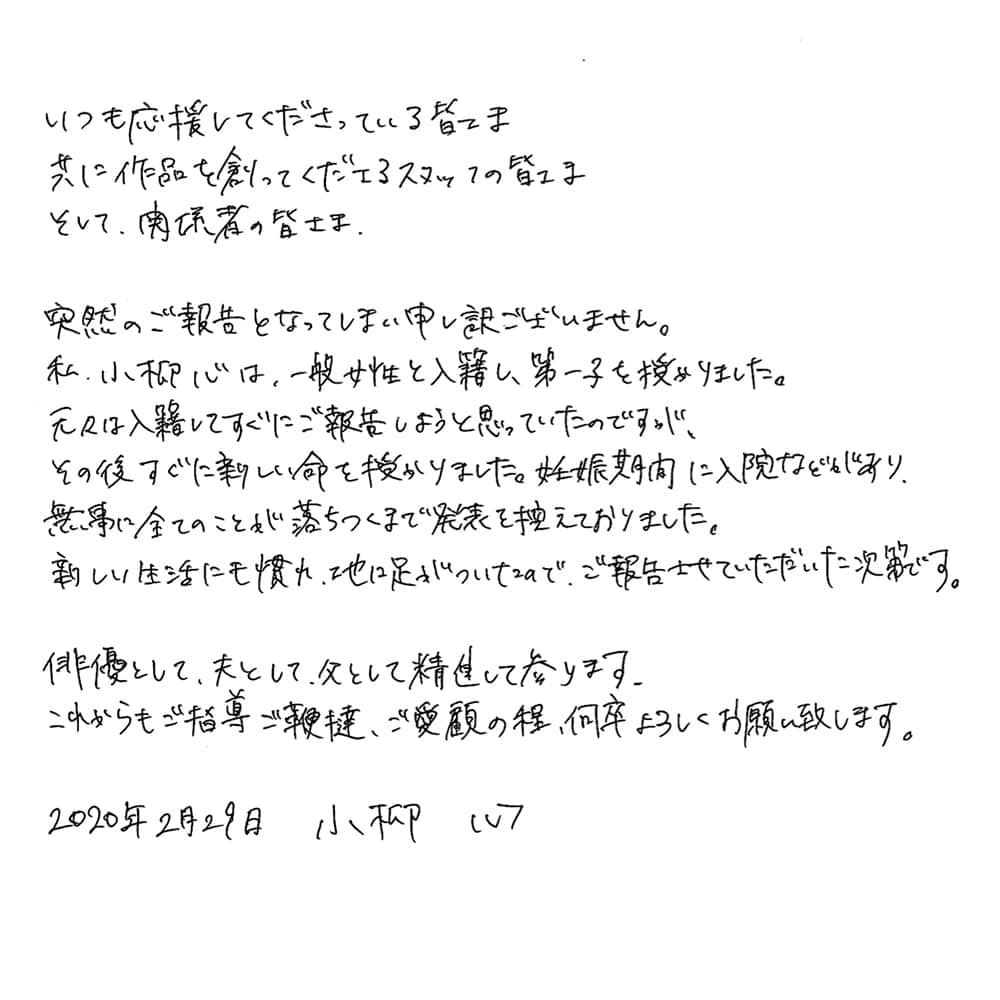 いつも応援してくださっている皆さま
共に作品を創ってくださるスタッフの皆さま
そして、関係者の皆さま、
突然のご報告となってしまい申し訳ございません。
私、小柳心は、一般女性と入籍し、第一子を授かりました。
元々は入籍してすぐにご報告しようと思っていたのですが、
その後すぐに新しい命を授かりました。妊娠期間に入院などがあり、
無事に全てのことが落ちつくまで発表を控えておりました。
新しい生活にも慣れ、地に足がついたので、ご報告させていただいた次第です。
俳優として、夫として、父として精進して参ります。
これからもご指導ご鞭撻、ご愛顧の程、何卒よろしくお願い致します。
2020年2月29日 小柳 心